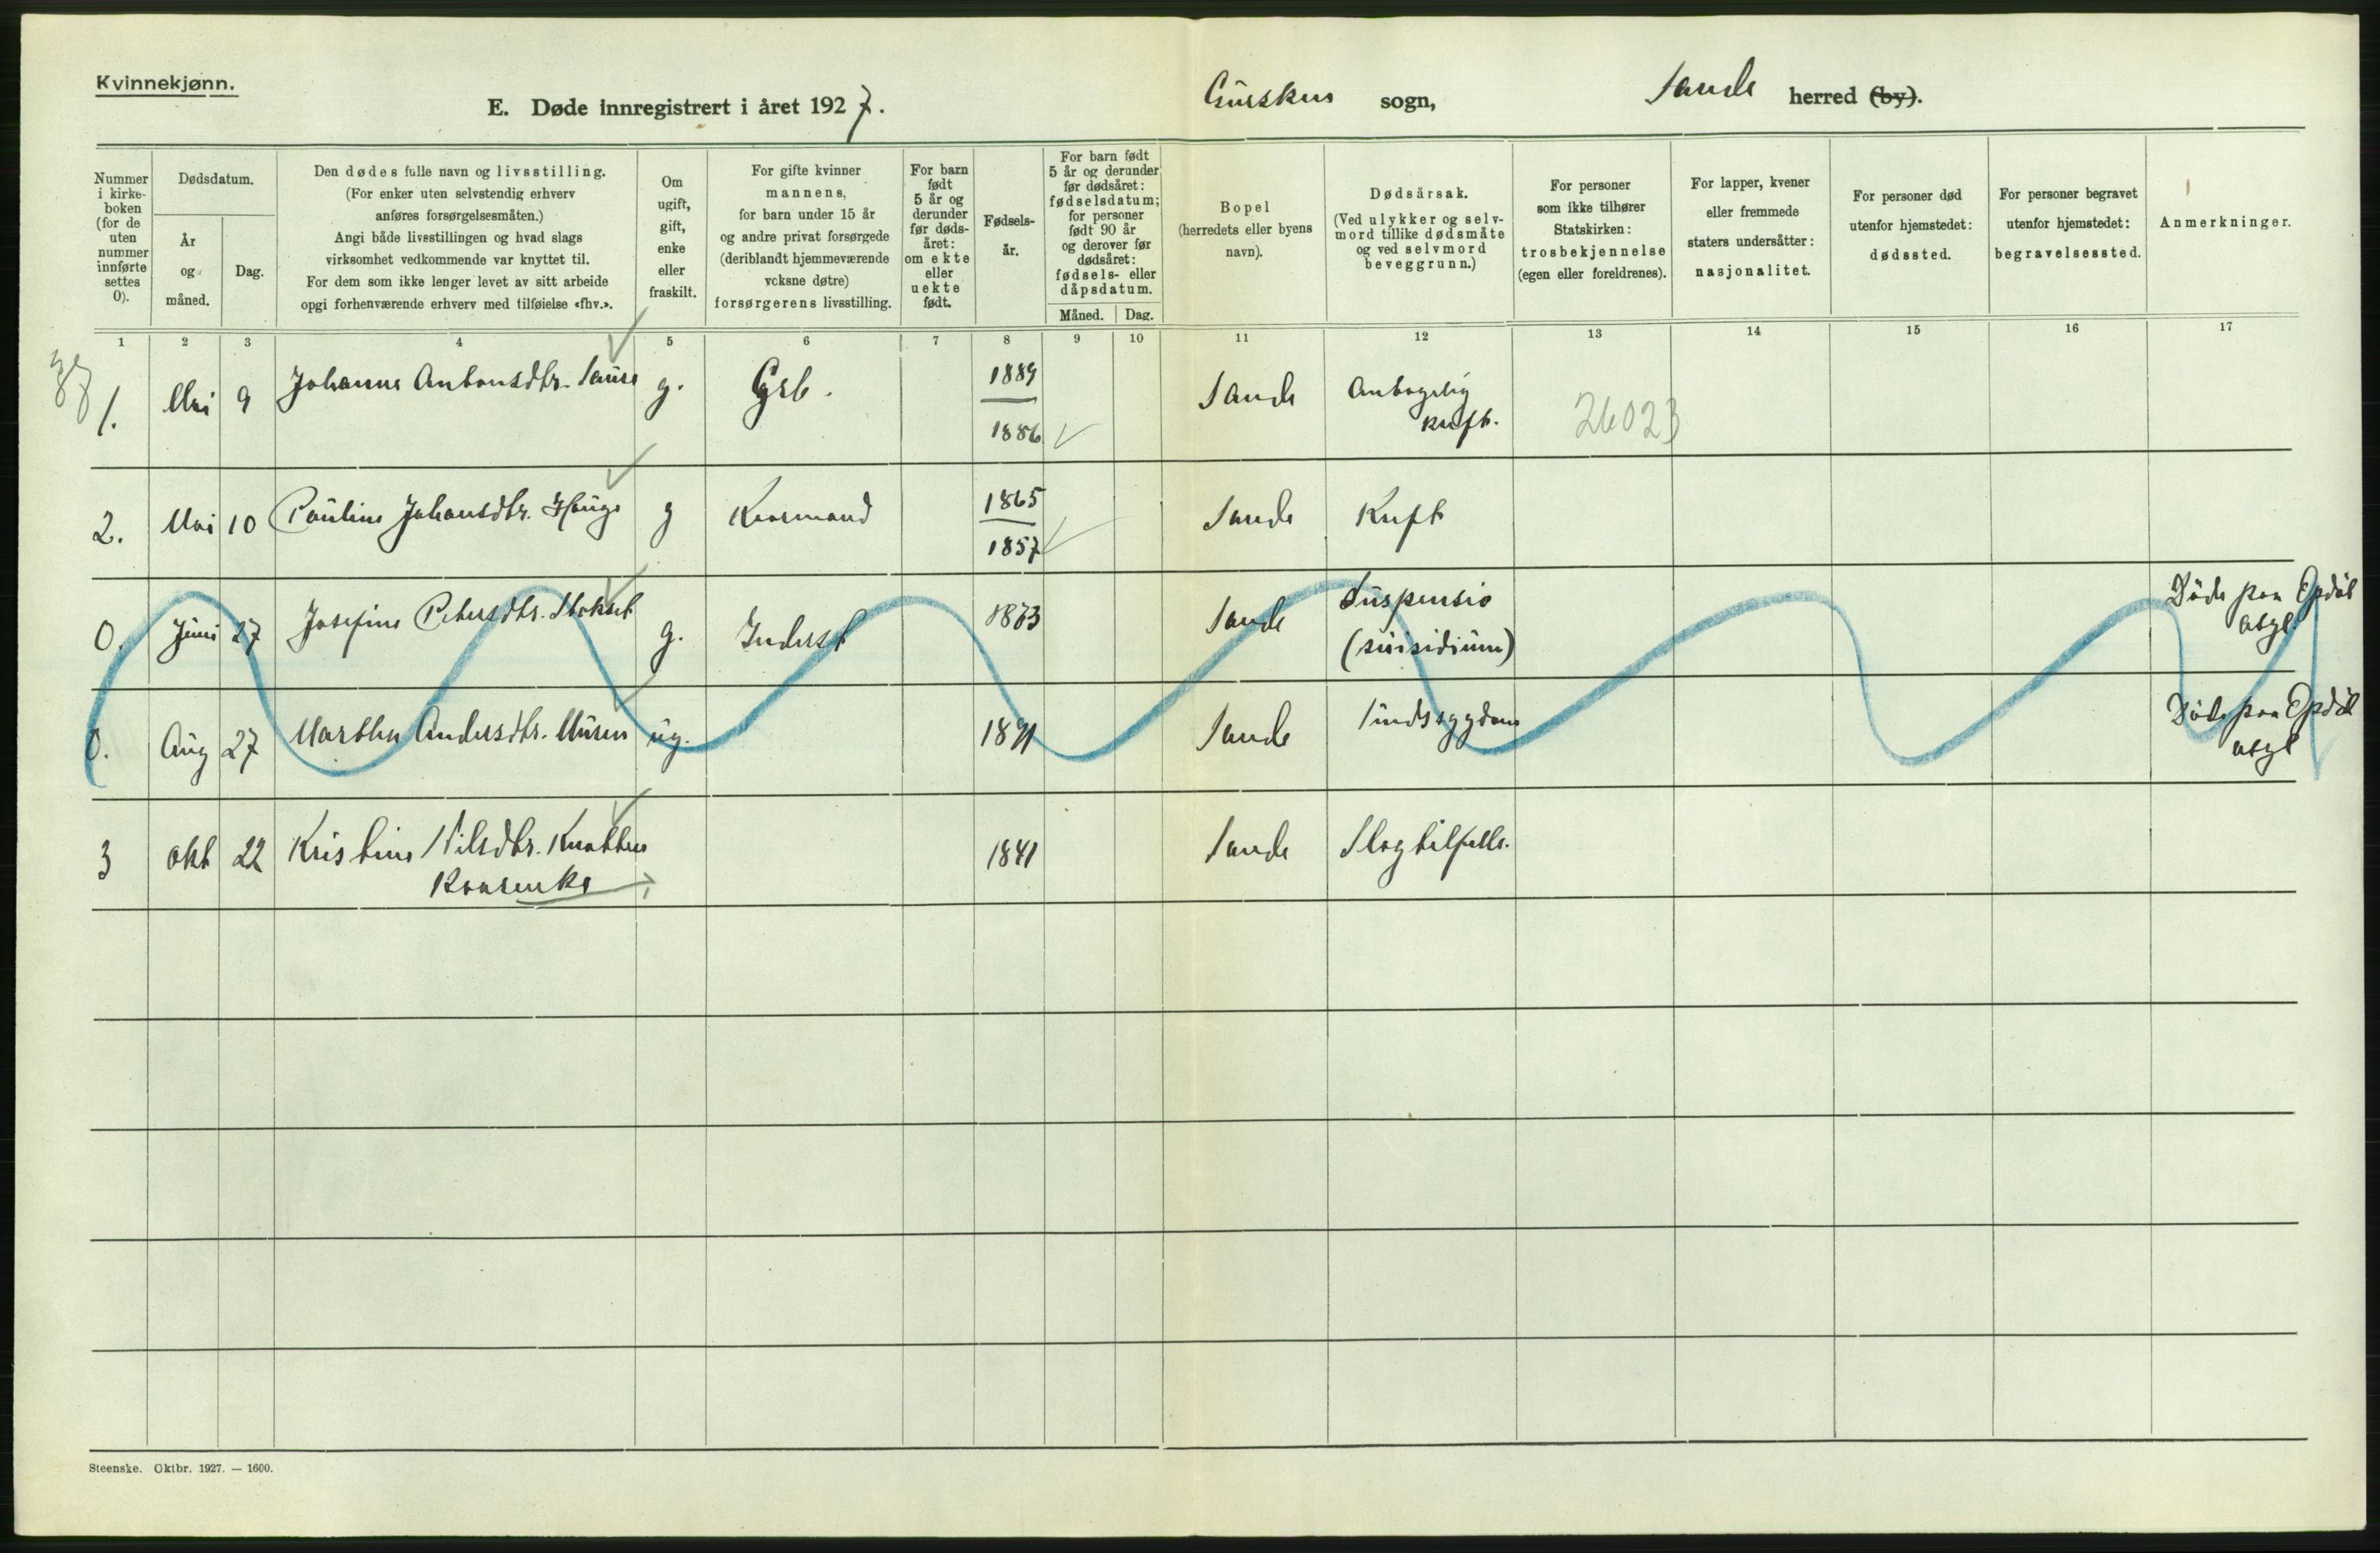 Kvinnekjønn.
E. Døde innregistrert i året 1927.
Gurskøen sogn,
Sande herred (by).
Nummer i kirke-boken (for de uten nummer innførte settes 0).
Dødsdatum.
År og måned.
Dag.
Den dødes fulle navn og livsstilling.
(For enker uten selvstendig erhverv
anføres forsørgelsesmåten.)
Angi både livsstillingen og hvad slags
virksomhet vedkommende var knyttet til.
For dem som ikke lenger levet av sitt arbeide
opgi forhenværende erhverv med tilføielse «fhv.».
Om
ugift,
gift,
enke
eller
fraskilt.
For gifte kvinner
mannens,
for barn under 15 år
og andre privat forsørgede
(deriblandt hjemmeværende
voksne døtre)
forsørgerens livsstilling.
For barn
født
5 år og
derunder
før døds-
året:
om ekte
eller
uekte
født.
Fødsels-
år.
For barn født
5 år og derunder
før dødsåret:
fødselsdatum;
for personer
født 90 år
og derover før
dødsåret:
fødsels- eller
dåpsdatum.
Måned. Dag.
Bopel
(herredets eller byens
navn).
Dødsårsak.
(Ved ulykker og selv-
mord tillike dødsmåte
og ved selvmord
beveggrunn.)
For personer
som ikke tilhører
Statskirken:
trosbekjennelse
(egen eller foreldrenes).
For lapper, kvener
eller fremmede
staters undersåtter:
nasjonalitet.
For personer død
utenfor hjemstedet:
dødssted.
For personer begravet
utenfor hjemstedet:
begravelsessted.
Anmerkninger.
1 2 3 4 5 6 7 8 9 10 11 12 13 14 15 16 17
1. Mai 9 Johanne Antonsdtr. g. Grb. 1889 Sande Antagelig
1886 kreft. 26023
2. Mai 10 Pauline Johansdtr. Hauge g Kaarmand 1865 Sande Kreft
1857
0. Juni 27 Josefine Petersdtr. Stokset g. Inderst 1873 Sande Suspensio Døde paa Opdøl
(suisidium) asyl
0. Aug 27 Marthea Andersdtr. Muren ug. 1891 Sande Sindssygdom Døde paa Opdøl
asyl
3 okt 22 Kristine Nilsdtr. 1841 Sande Slagtilfelle.
Kaarenke
Steenske. Oktbr. 1927. — 1600.